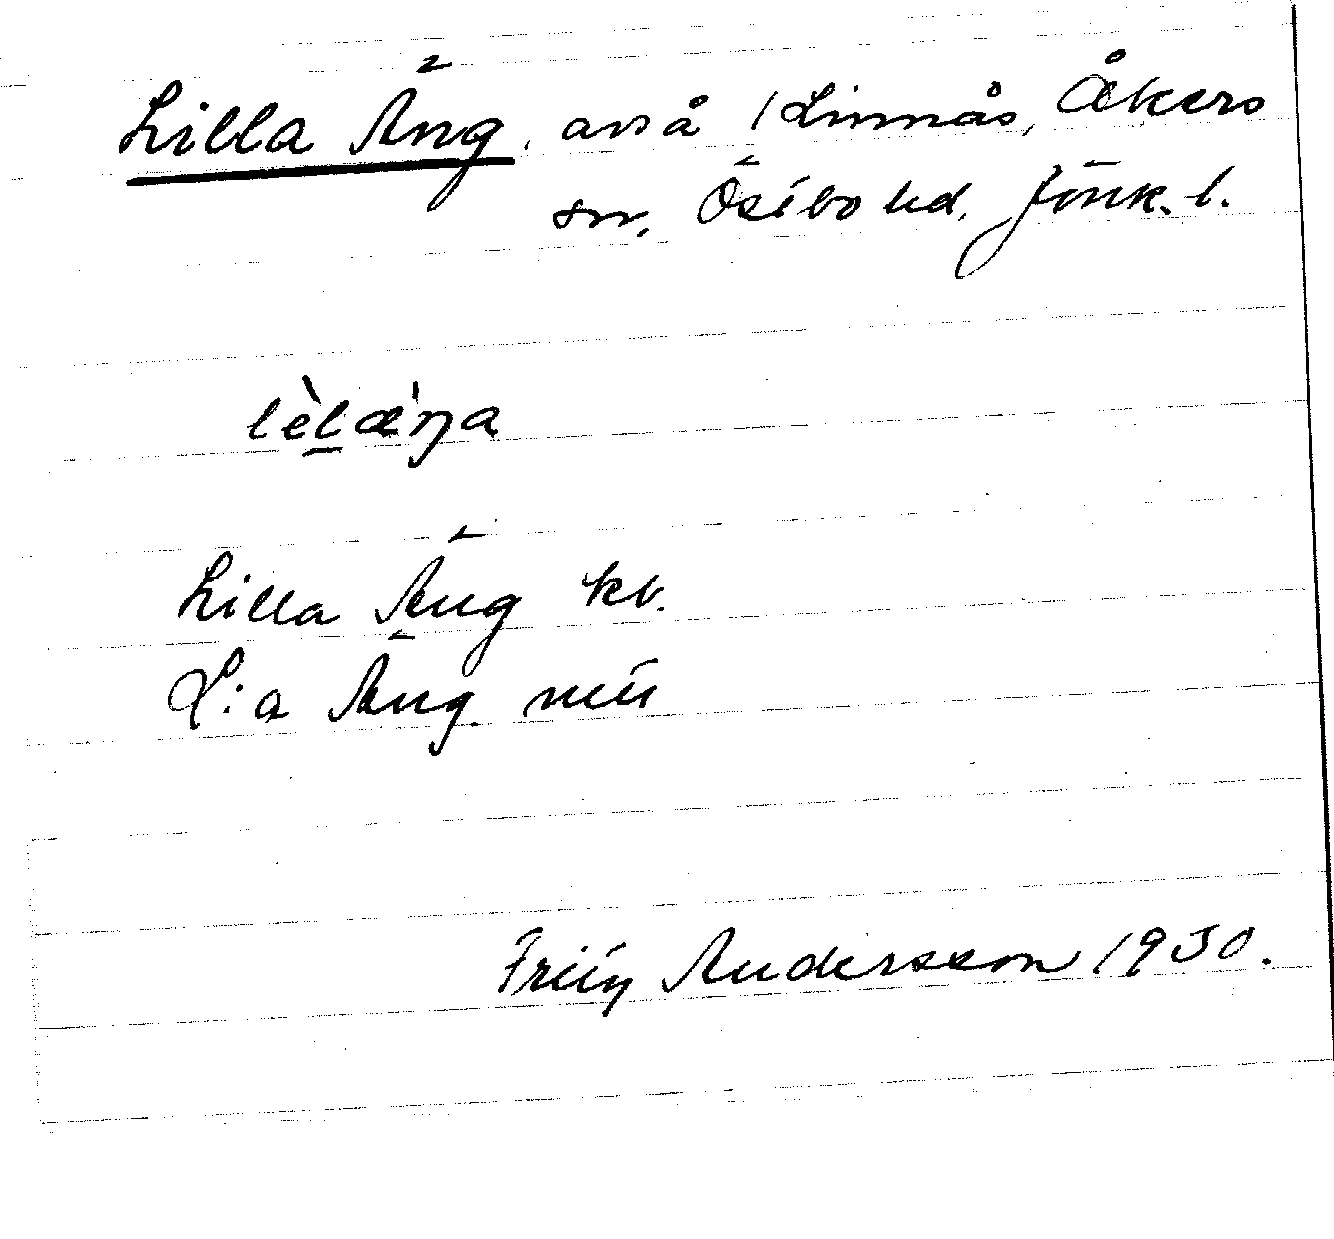 Lilla Äng, avs å /Linnås, Åkers
sn, Östbo hd, Jönk. l.
lèlæ'ŋa
Lilla Äng kv.
L:a Äng
Andersson 1930.